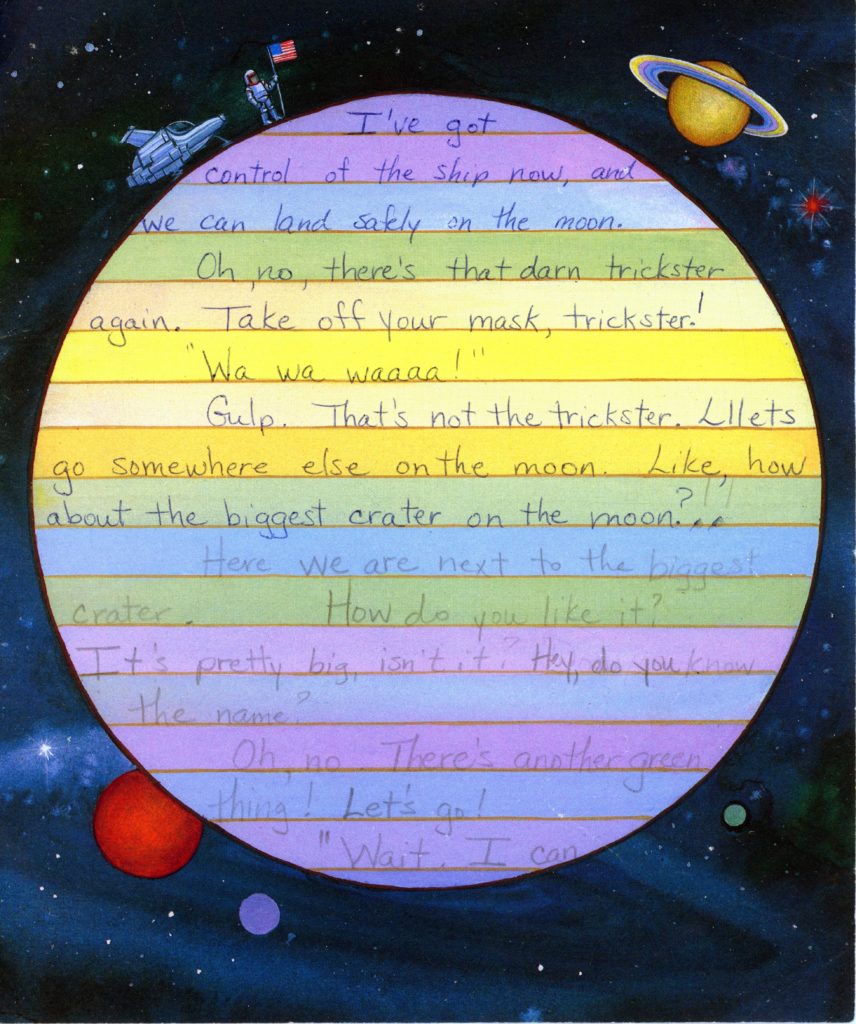 I've got
control of the ship now, and
we can land safely on the moon.
Oh, no, there's that darn trickster
again. Take off your mask, trickster!
"Wa wa waaaa!"
Gulp. That's not the trickster. Lllets
go somewhere else on the moon. Like, how
about the biggest crater on the moon?..
Here we are next to the biggest
crater. How do you like it?
It's pretty big, isn't it? Hey, do you know
the name?
Oh, no. There's another green
thing! Let's go!
"Wait. I can